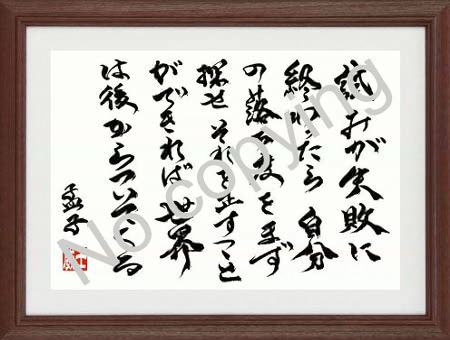 試みが失敗に
終わったら 自分
の落ち度をまず
探せ それを正すこと
ができれば 世界
は後からついてくる
孟子
No copying